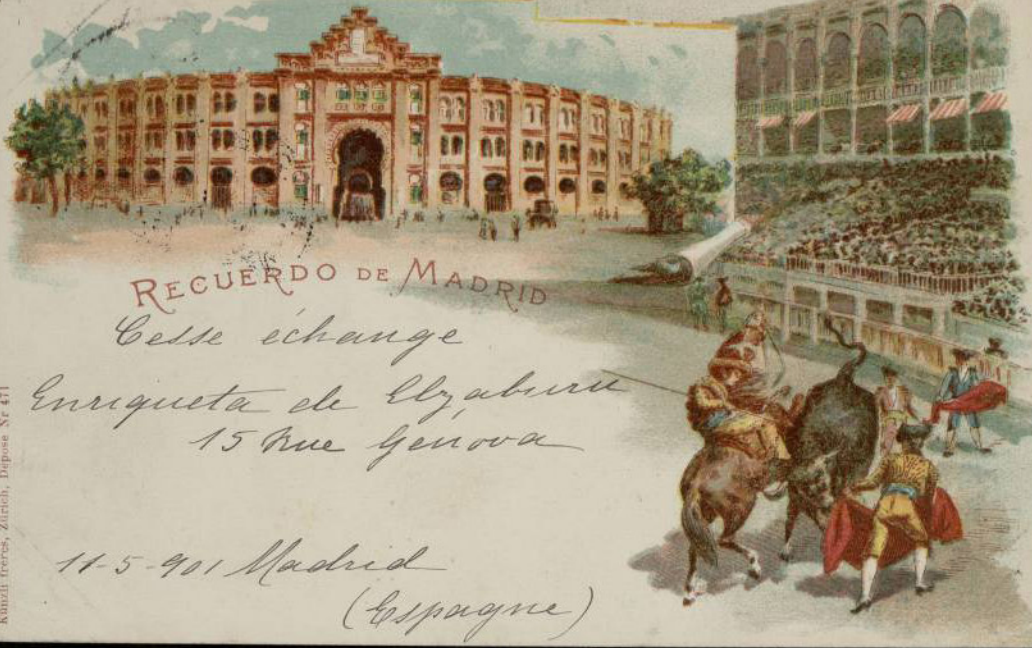 RECUERDO DE MADRID
Cesse échange
Enriqueta de Elzaburu
15 Rue Génova
11-5-901 Madrid
(Espagne)
Künzli frères, Zürich, Déposé Nr 471